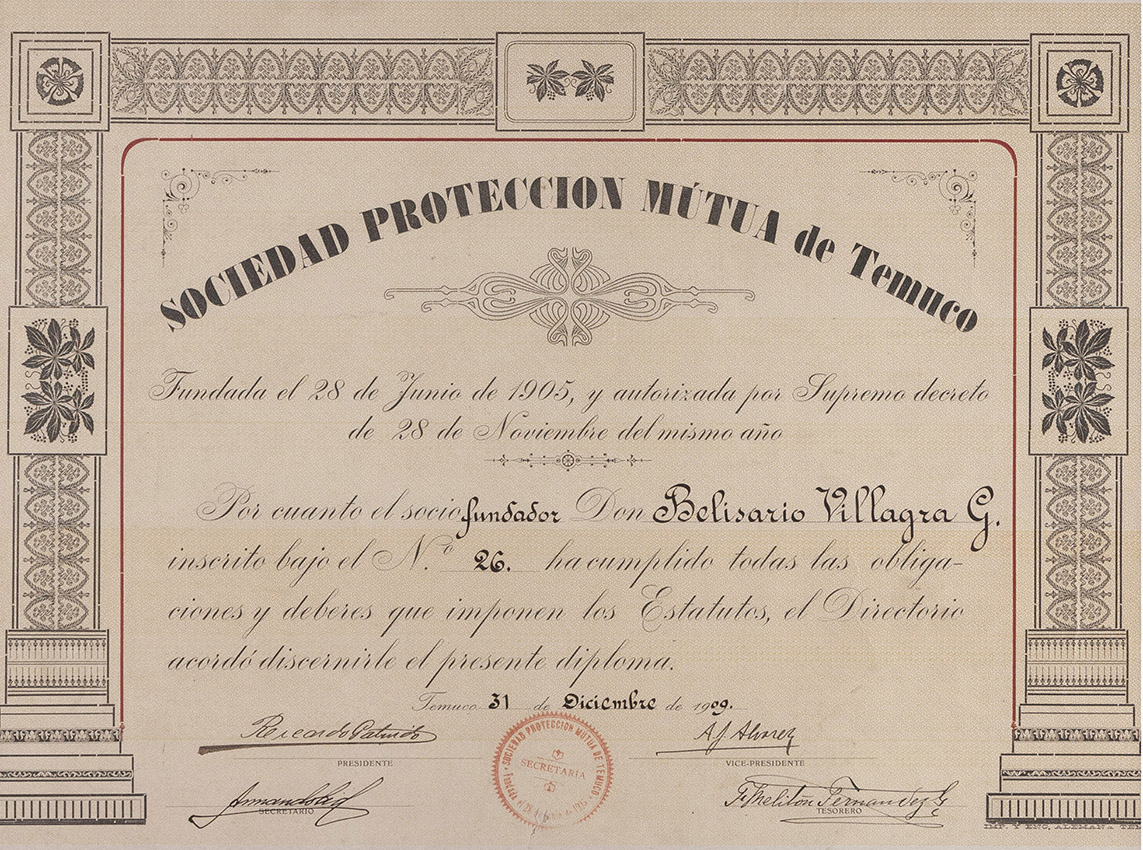 SOCIEDAD PROTECCION MÚTUA de Temuco
Fundada el 28 de Junio de 1905, y autorizada por Supremo decreto
de 28 de Noviembre del mismo año
Por cuanto el socio fundador Don Belisario Villagra G.
inscrito bajo el N.º 26. ha cumplido todas las obliga-
ciones y deberes que imponen los Estatutos, el Directorio
acordó discernirle el presente diploma.
Temuco 31 de Diciembre de 1909.
Ricardo
PRESIDENTE
A. J. Alvarez
VICE-PRESIDENTE
SOCIEDAD PROTECCION MUTUA DE TEMUCO
SECRETARIA
Armando
SECRETARIO
Meliton Fernandez G
TESORERO
IMP. Y ENC. ALEMANA TEM